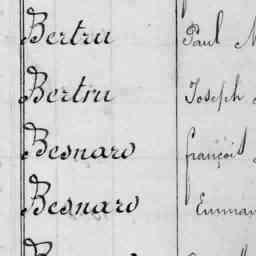 Bertru Paul
Bertru Joseph
Besnard françois
Besnard Emman